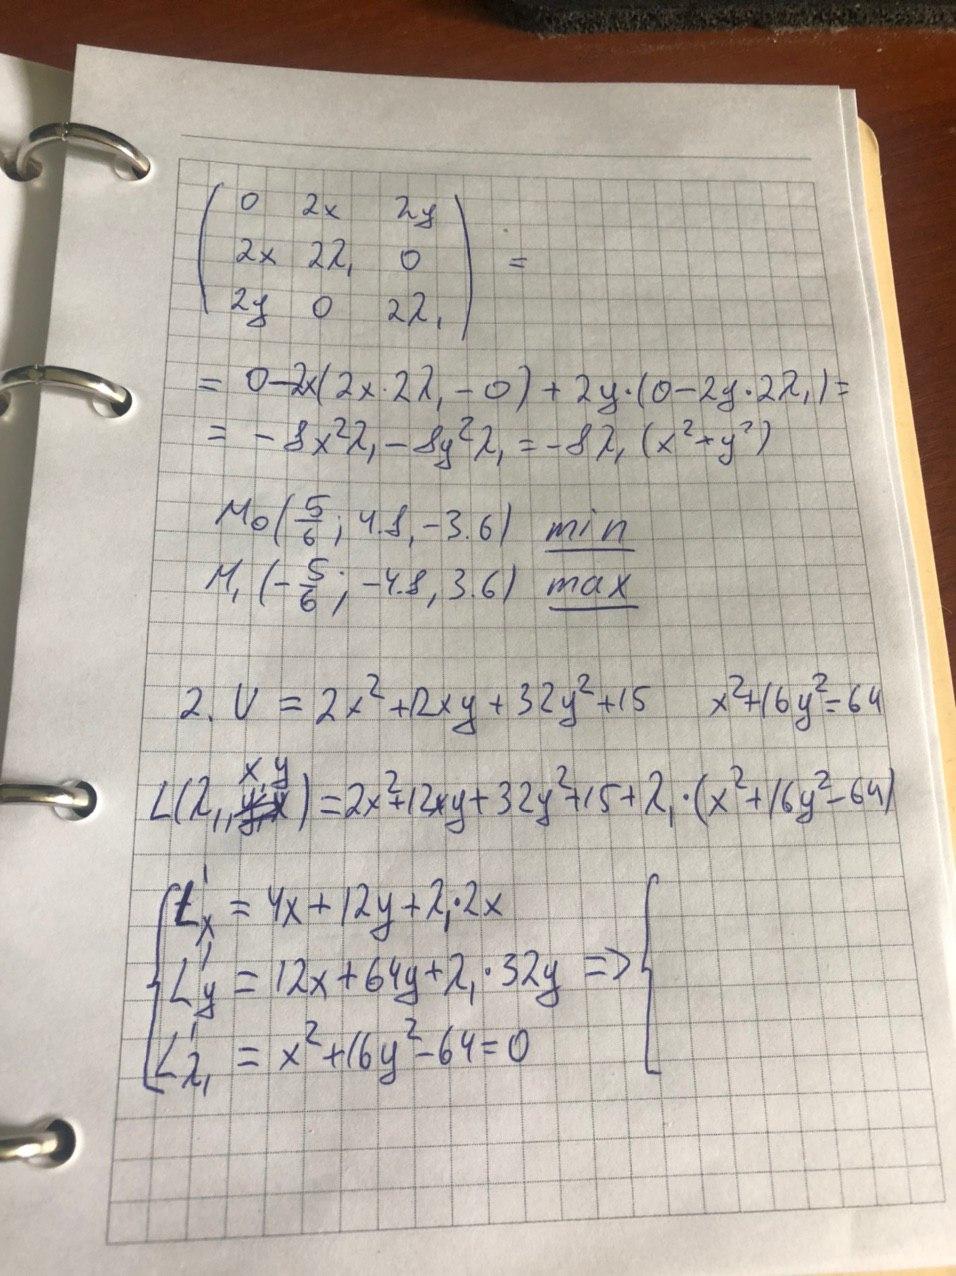 0 2x 2y
2x 2λ₁ 0 =
2y 0 2λ₁
= 0-2x(2x·2λ₁-0)+2y·(0-2y·2λ₁)=
= -8x²λ₁-8y²λ₁=-8λ₁(x²+y²)
M₀(5/6; 4.8,-3.6) min
M₁(-5/6; -4.8,3.6) max
2. U = 2x²+12xy+32y²+15 x²+16y²=64
L(λ₁, x, y)=2x²+12xy+32y²+15+λ₁·(x²+16y²-64)
L'x = 4x+12y+λ₁·2x
L'y = 12x+64y+λ₁·32y =>
L'λ₁ = x²+16y²-64=0